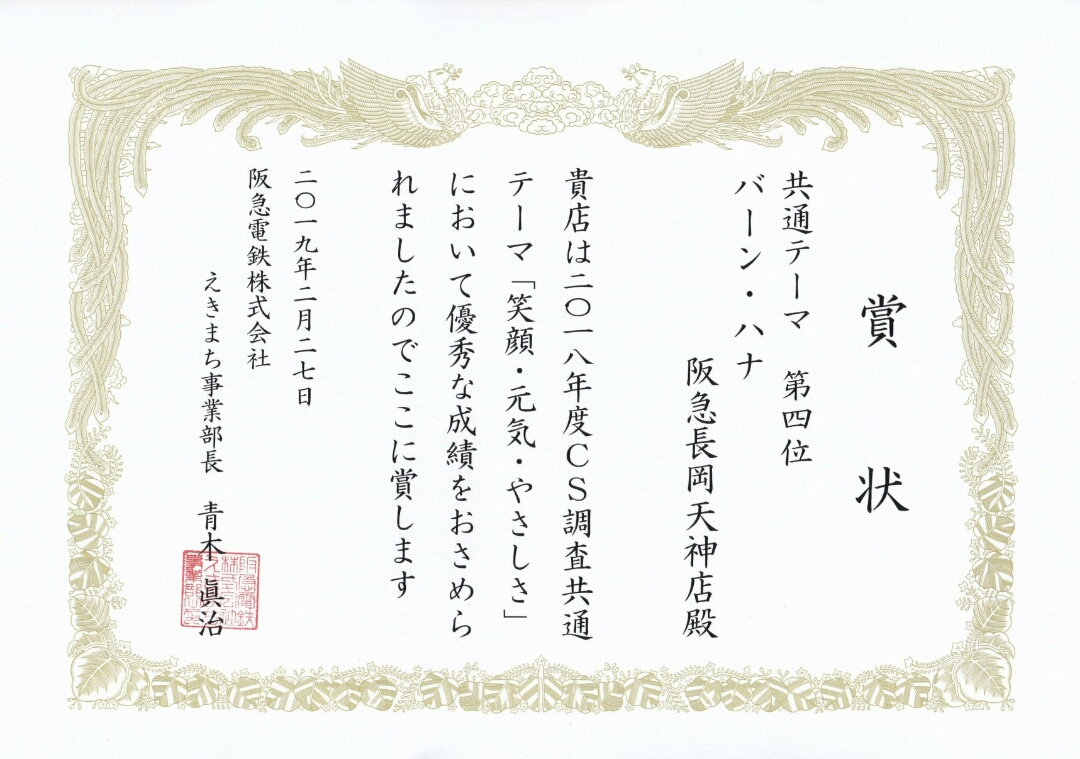 賞状
共通テーマ　第四位
バーン・ハナ
阪急長岡天神店殿
貴店は二〇一八年度ＣＳ調査共通
テーマ「笑顔・元気・やさしさ」
において優秀な成績をおさめら
れましたのでここに賞します
二〇一九年二月二七日
阪急電鉄株式会社
えきまち事業部長　青木　眞治